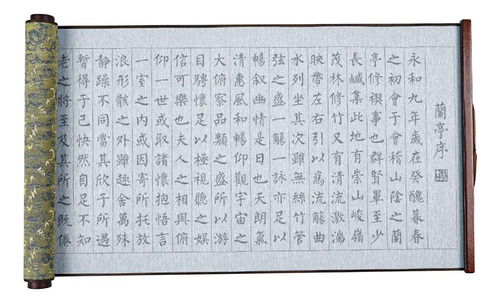 蘭亭序
永和九年歲在癸醜暮春
之初會于會稽山陰之蘭
亭修禊事也群賢畢至少
長鹹集此地有崇山峻嶺
茂林修竹又有清流激湍
映帶左右引以為流觴曲
水列坐其次雖無絲竹管
弦之盛一觴一詠亦足以
暢敘幽情是日也天朗氣
清惠風和暢仰觀宇宙之
大俯察品類之盛所以游
目騁懷足以極視聽之娛
信可樂也夫人之相與俯
仰一世或取諸懷抱悟言
一室之內或因寄所托放
浪形骸之外雖趣舍萬殊
靜躁不同當其欣于所遇
暫得于己快然自足不知
老之將至及其所之既倦